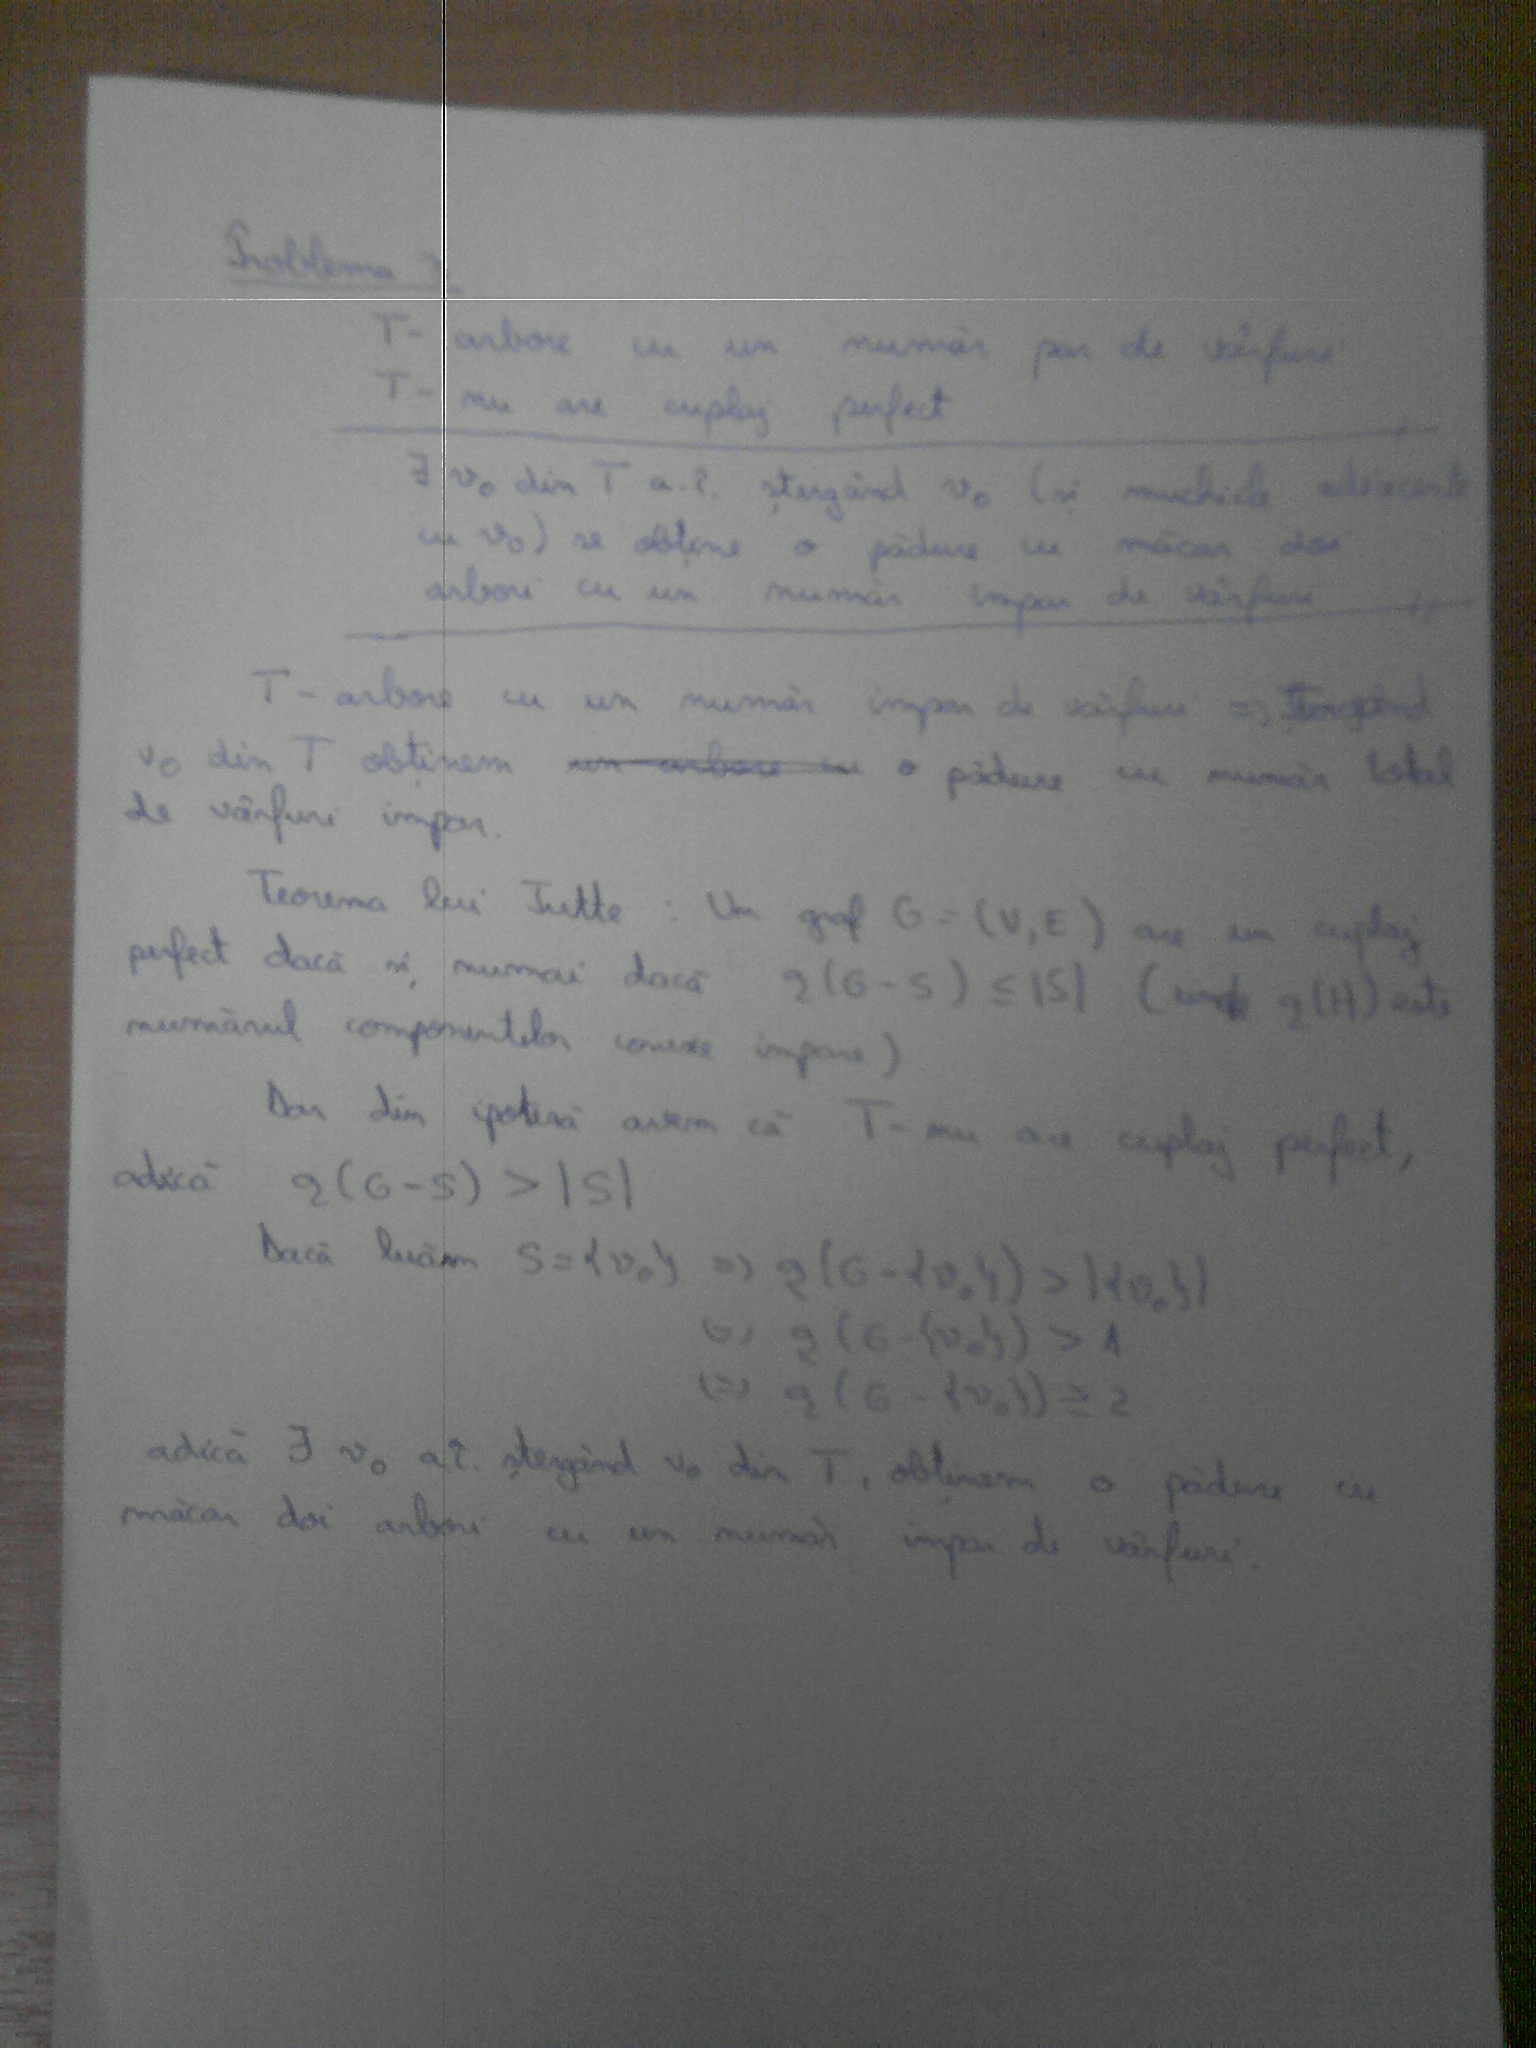 Problema 3
T- arbore cu un număr par de vârfuri
T- nu are cuplaj perfect
∃ v₀ din T a.î. ștergând v₀ (și muchiile adiacente
cu v₀) se obține o pădure cu măcar doi
arbori cu un număr impar de vârfuri
T- arbore cu un număr impar de vârfuri => Ștergând
v₀ din T obținem un arbore cu o pădure cu număr total
de vârfuri impar.
Teorema lui Tutte : Un graf G = (V, E) are un cuplaj
perfect dacă și numai dacă q(G-S) ≤ |S| (unde q(H) este
numărul componentelor conexe impare)
Dar din ipoteză avem că T- nu are cuplaj perfect,
adică q(G-S) > |S|
Dacă luăm S={v₀} => q(G-{v₀}) > |{v₀}|
<=> q(G-{v₀}) > 1
<=> q(G-{v₀}) ≥ 2
adică ∃ v₀ a.î. ștergând v₀ din T, obținem o pădure cu
măcar doi arbori cu un număr impar de vârfuri.